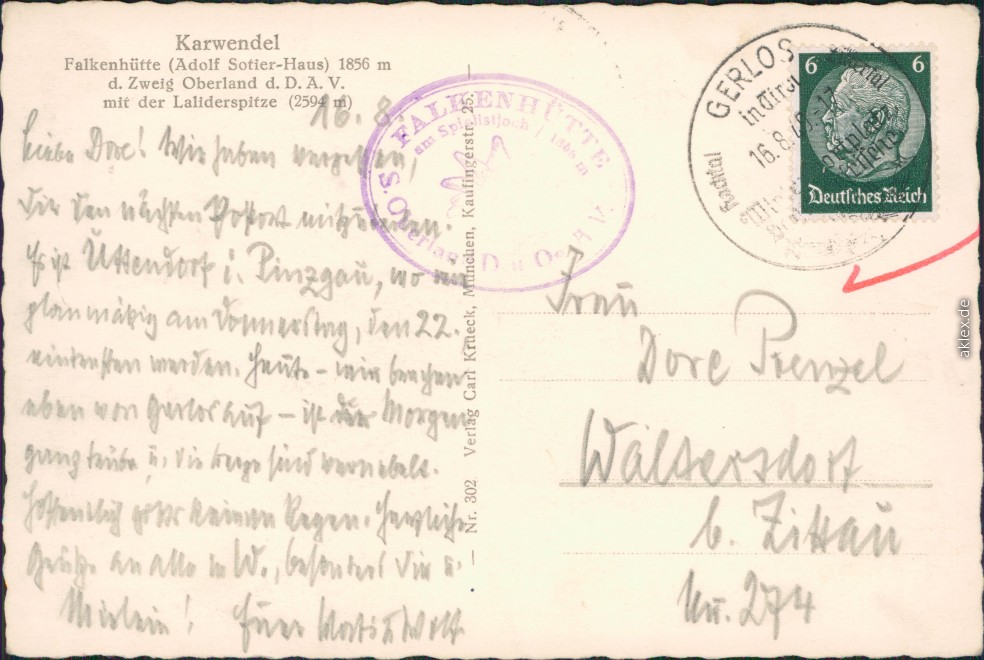 Karwendel
Falkenhütte (Adolf Sotier-Haus) 1856 m
d. Zweig Oberland d. D. A. V.
mit der Laliderspitze (2594 m)
16. 8.
Liebe Dore! Wir haben vergessen,
dir den nächsten Postort mitzuteilen.
Es ist Uttendorf i. Pinzgau, wo wir
planmäßig am Donnerstag, den 22.
eintreffen werden. Heute – wir brechen
eben von Gerlos auf – ist der Morgen
ganz trübe u. die Berge sind vernebelt.
Hoffentlich gibts keinen Regen. Herzliche
Grüße an alle in W., besonders die u.
Mielein! Eure Mati u Wolf.
Nr. 302 Verlag Carl Krueck, München, Kaufingerstr. 25.
FALKENHÜTTE
am Spielistjoch / 1846 m
S. Oberland D. u. Oe. A. V.
GERLOS
in Tirol
16.8.40
6 6
Deutsches Reich
Frau
Dore Prenzel
Waltersdorf
b. Zittau
Nr. 274
aklex.de